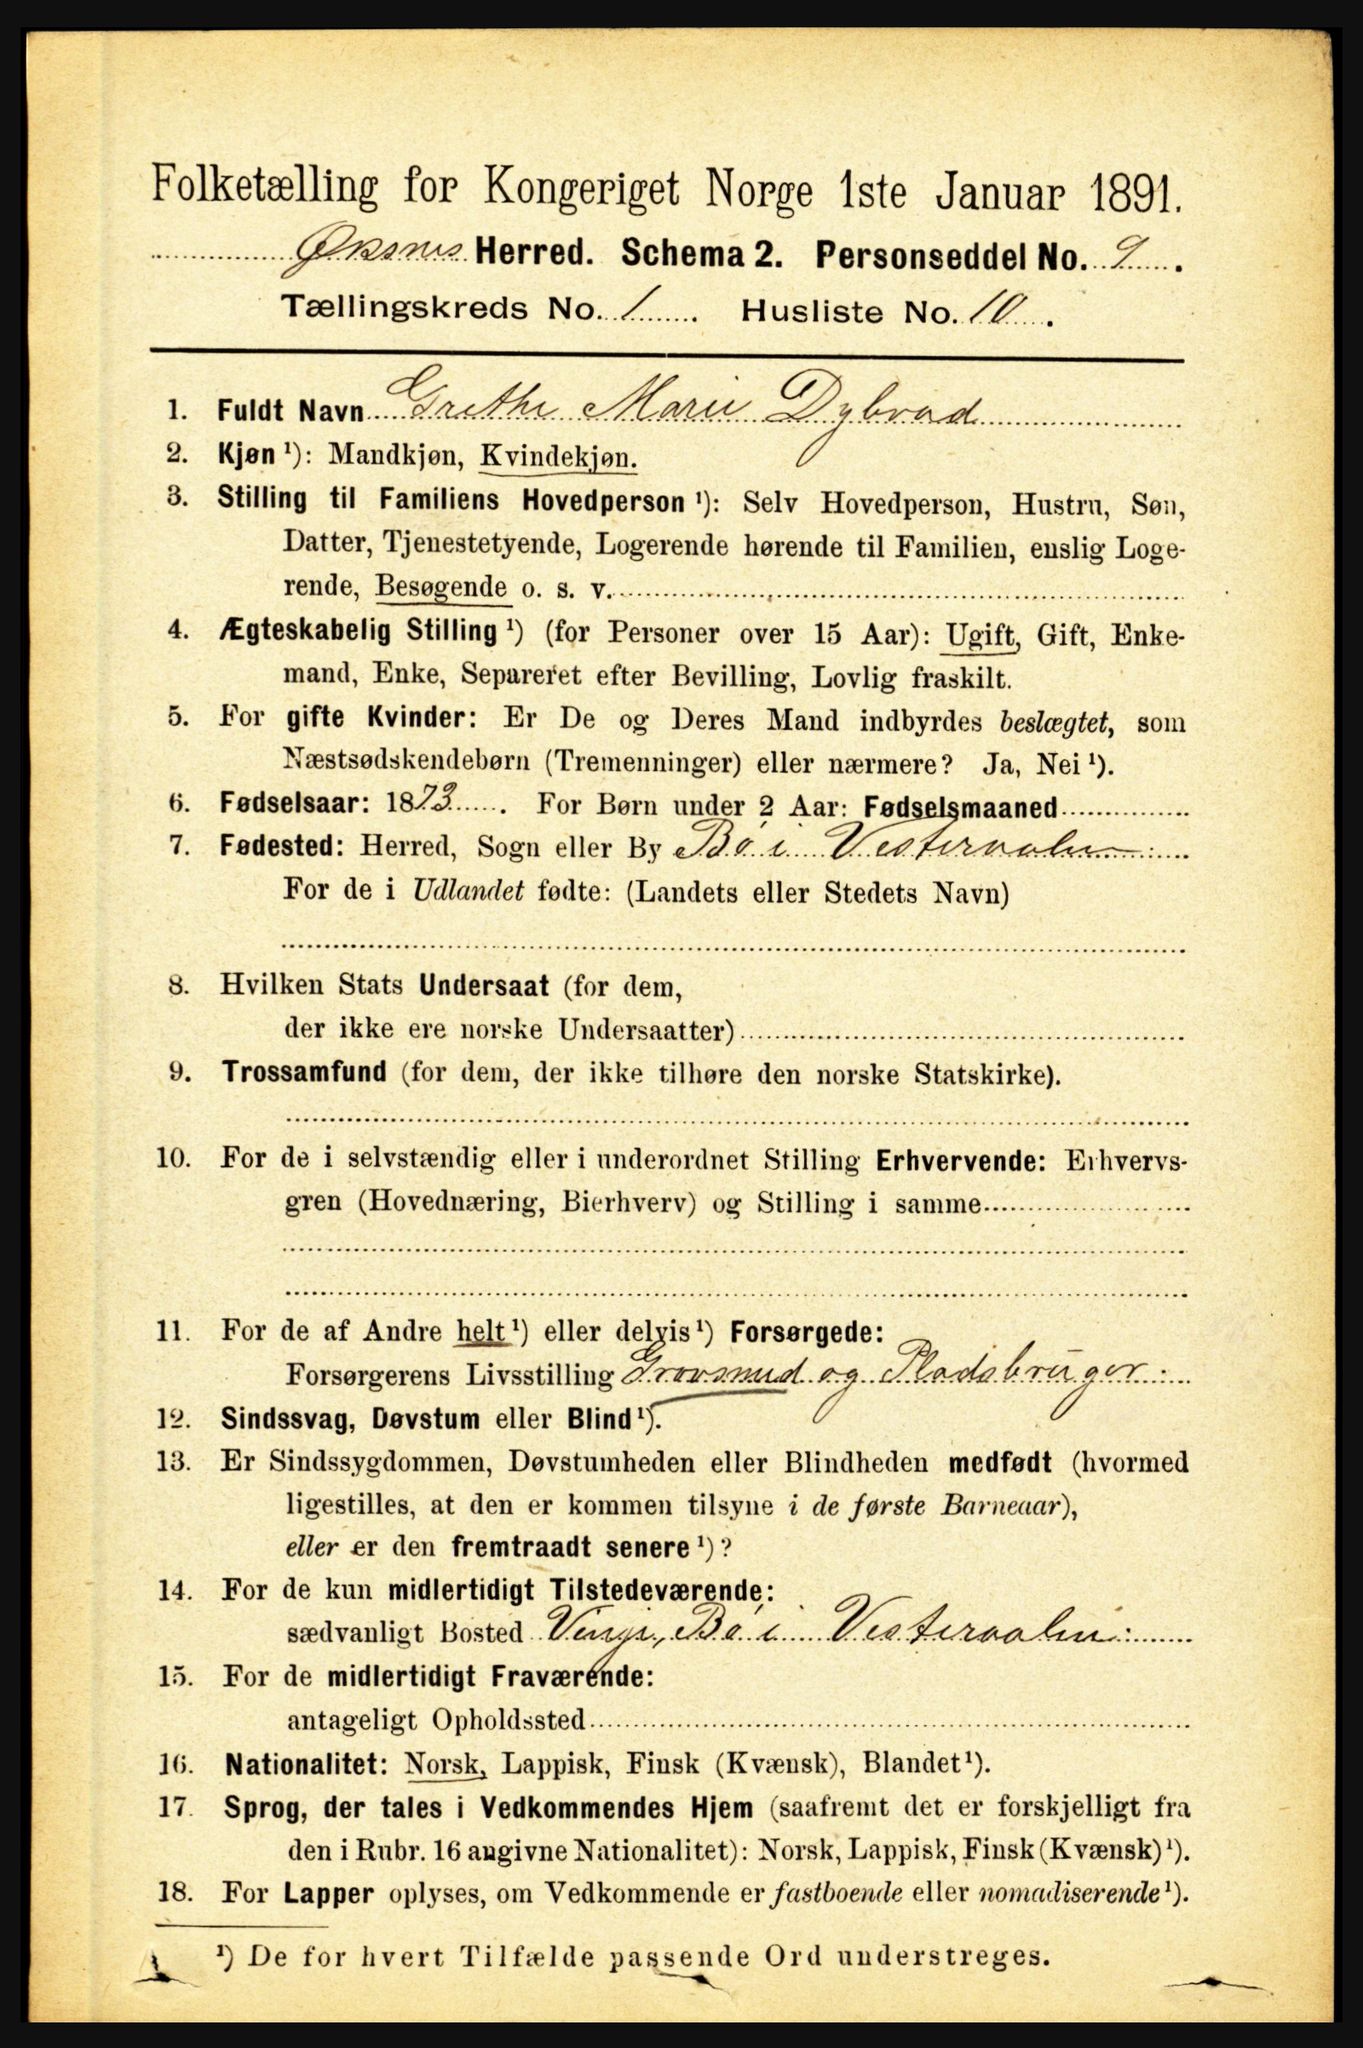 Folketælling for Kongeriget Norge 1ste Januar 1891.
Øksnes Herred. Schema 2. Personseddel No. 9.
Tællingskreds No. 1. Husliste No. 10.
1. Fuldt Navn Grethe Marie Dybvad
2. Kjøn ¹): Mandkjøn, Kvindekjøn.
3. Stilling til Familiens Hovedperson ¹): Selv Hovedperson, Hustru, Søn,
Datter, Tjenestetyende, Logerende hørende til Familien, enslig Loge-
rende, Besøgende o. s. v.
4. Ægteskabelig Stilling ¹) (for Personer over 15 Aar): Ugift, Gift, Enke-
mand, Enke, Separeret efter Bevilling, Lovlig fraskilt.
5. For gifte Kvinder: Er De og Deres Mand indbyrdes beslægtet, som
Næstsødskendebørn (Tremenninger) eller nærmere? Ja, Nei ¹).
6. Fødselsaar: 1873. For Børn under 2 Aar: Fødselsmaaned
7. Fødested: Herred, Sogn eller By Bø i Vesteraalen
For de i Udlandet fødte: (Landets eller Stedets Navn)
8. Hvilken Stats Undersaat (for dem,
der ikke ere norske Undersaatter)
9. Trossamfund (for dem, der ikke tilhøre den norske Statskirke).
10. For de i selvstændig eller i underordnet Stilling Erhvervende: Erhvervs-
gren (Hovednæring, Bierhverv) og Stilling i samme
11. For de af Andre helt ¹) eller delvis ¹) Forsørgede:
Forsørgerens Livsstilling Grovsmed og Pladsbruger
12. Sindssvag, Døvstum eller Blind ¹).
13. Er Sindssygdommen, Døvstumheden eller Blindheden medfødt (hvormed
ligestilles, at den er kommen tilsyne i de første Barneaar),
eller er den fremtraadt senere ¹)?
14. For de kun midlertidigt Tilstedeværende:
sædvanligt Bosted Vinje, Bø i Vesteraalen
15. For de midlertidigt Fraværende:
antageligt Opholdssted
16. Nationalitet: Norsk, Lappisk, Finsk (Kvænsk), Blandet ¹).
17. Sprog, der tales i Vedkommendes Hjem (saafremt det er forskjelligt fra
den i Rubr. 16 angivne Nationalitet): Norsk, Lappisk, Finsk (Kvænsk) ¹).
18. For Lapper oplyses, om Vedkommende er fastboende eller nomadiserende ¹).
¹) De for hvert Tilfælde passende Ord understreges.